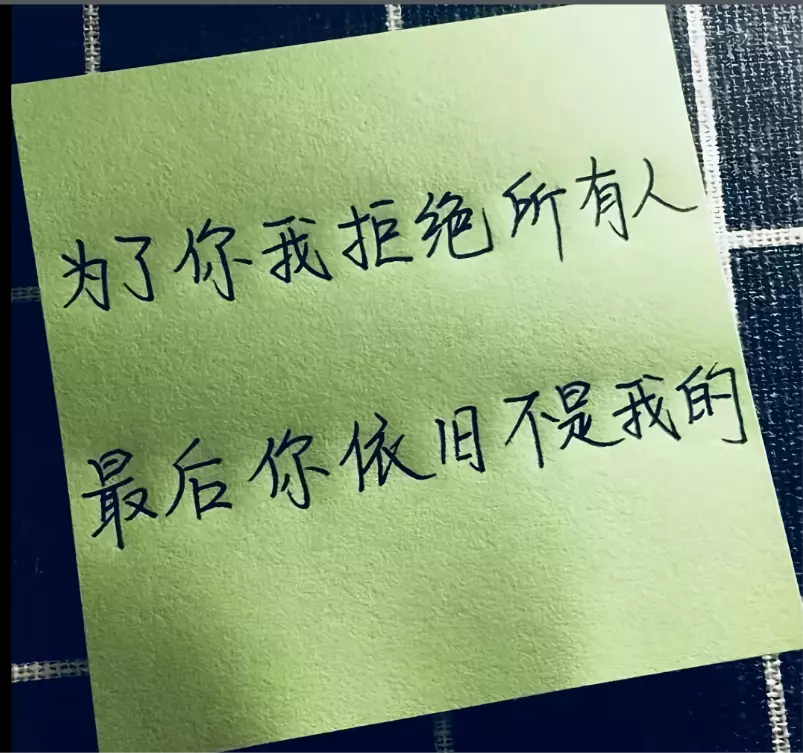 为了你我拒绝所有人
最后你依旧不是我的